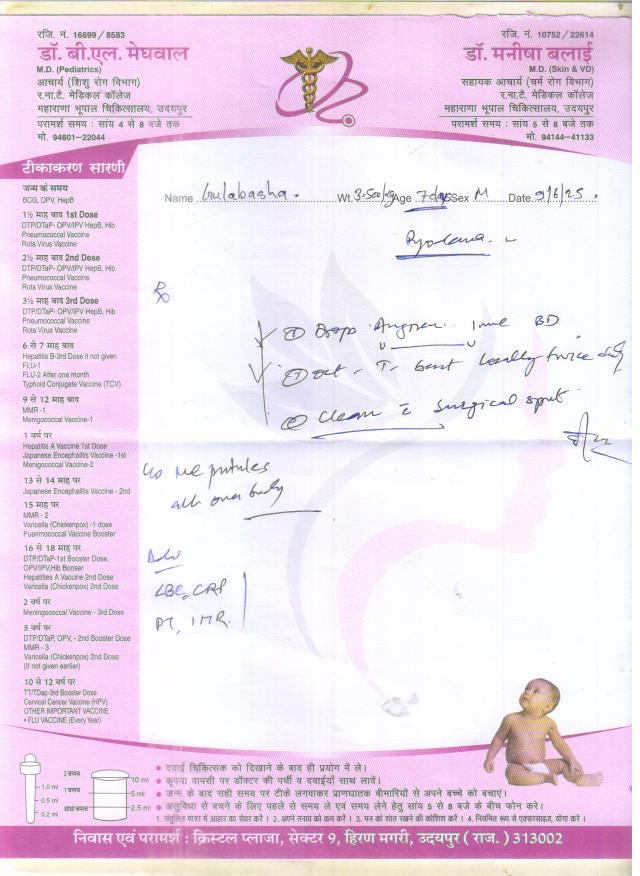 रजि. नं. 16899 / 8583
डॉ. बी.एल. मेघवाल
M.D. (Pediatrics)
आचार्य (शिशु रोग विभाग)
र.ना.टै. मेडिकल कॉलेज
महाराणा भूपाल चिकित्सालय, उदयपुर
परामर्श समय : सांय 4 से 8 बजे तक
मो. 94601-22044
रजि. नं. 10752 / 22614
डॉ. मनीषा बलाई
M.D. (Skin & VD)
सहायक आचार्य (चर्म रोग विभाग)
र.ना.टै. मेडिकल कॉलेज
महाराणा भूपाल चिकित्सालय, उदयपुर
परामर्श समय : सांय 5 से 8 बजे तक
मो. 94144-41133
टीकाकरण सारणी
जन्म के समय
BCG, OPV, HepB
1½ माह बाद 1st Dose
DTP/DTaP- OPV/IPV HepB, Hib
Pneumococcal Vaccine
Rota Virus Vaccine
2½ माह बाद 2nd Dose
DTP/DTaP- OPV/IPV HepB, Hib
Pneumococcal Vaccine
Rota Virus Vaccine
3½ माह बाद 3rd Dose
DTP/DTaP- OPV/IPV HepB, Hib
Pneumococcal Vaccine
Rota Virus Vaccine
6 से 7 माह बाद
Hepatitis B-3rd Dose it not given
FLU-1
FLU-2 After one month
Typhoid Conjugate Vaccine (TCV)
9 से 12 माह बाद
MMR -1
Menigococcal Vaccine-1
1 वर्ष पर
Hepatitis A Vaccine 1st Dose
Japanese Encephalitis Vaccine -1st
Menigococcal Vaccine-2
13 से 14 माह पर
Japanese Encephalitis Vaccine - 2nd
15 माह पर
MMR - 2
Varicella (Chickenpox) -1 dose
Puenmococcal Vaccine Booster
16 से 18 माह पर
DTP/DTaP-1st Booster Dose,
OPV/IPV,Hib Booser
Hepatities A Vaccine 2nd Dose
Varicella (Chickenpox) 2nd Dose
2 वर्ष पर
Meningococcal Vaccine - 3rd Dose
5 वर्ष पर
DTP/DTaP, OPV, - 2nd Booster Dose
MMR - 3
Varicella (Chickenpox) 2nd Dose
(If not given earlier)
10 से 12 वर्ष पर
TT/TDap-3rd Booster Dose
Cervical Cancer Vaccine (HPV)
OTHER IMPORTANT VACCINE
• FLU VACCINE (Every Year)
Name Gulabasha. Wt. 3.500kg Age 7days Sex M Date 9/6/25.
Rx
① Drops 1ml BD
② T- locally twice
③ Clean c Surgical spirit
pustules
all over body
Adv
CBC, CRP
PT, INR.
2 चम्मच
1 चम्मच
आधा चम्मच
1.0 ml
0.5 ml
0.2 ml
10 ml
5 ml
2.5 ml
• दवाई चिकित्सक को दिखाने के बाद ही प्रयोग में ले।
• कृपया वापसी पर डॉक्टर की पर्ची व दवाईयाँ साथ लावें।
• जन्म के बाद सही समय पर टीके लगवाकर प्राणघातक बीमारियों से अपने बच्चे को बचाएं।
• असुविधा से बचने के लिए पहले से समय ले एवं समय लेने हेतु सांय 5 से 8 बजे के बीच फोन करे।
1. संतुलित मात्रा में आहार का सेवर करें । 2. अपने तनाव को कम करें । 3. मन को शांत रखने की कोशिश करें । 4. नियमित रूप से एक्सरसाइज, योगा करें ।
निवास एवं परामर्श : क्रिस्टल प्लाजा, सेक्टर 9, हिरण मगरी, उदयपुर ( राज. ) 313002